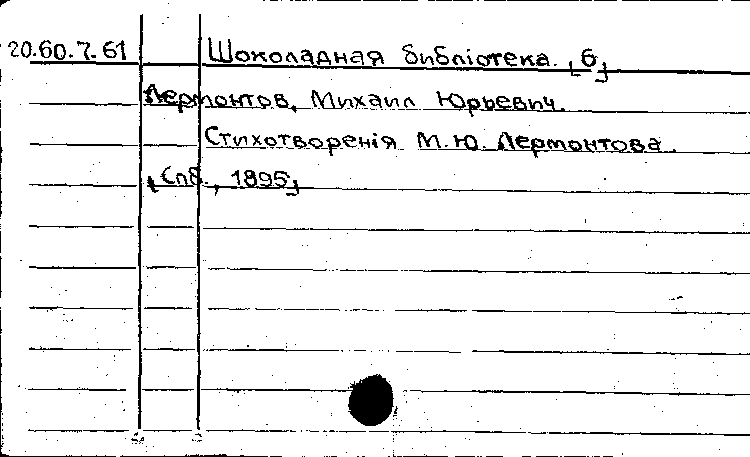 20.60.7.61 Шоколадная библіотека. [6]
Лермонтов, Михаил Юрьевич.
Стихотворенія М.Ю. Лермонтова.
[Спб., 1895]